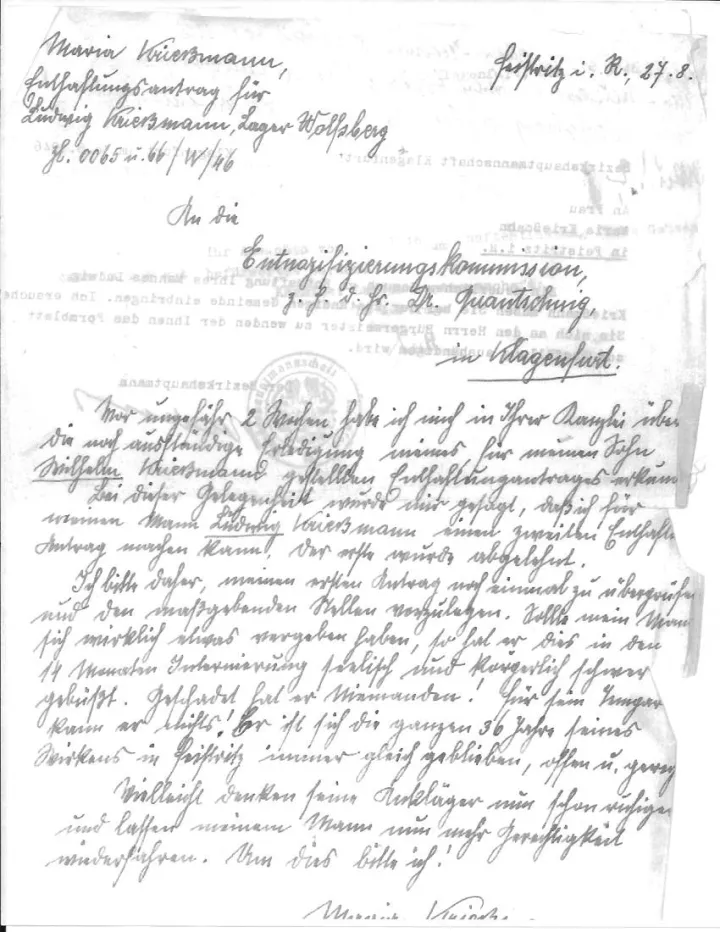 Maria Kriessmann,
Feistritz i. R., 27.8.
Enthaftungsantrag für
Ludwig Kriessmann, Lager Wolfsberg
Zl. 0065 u. 66/W/46
An die
Entnazifizierungskommission,
z. H. d. Hr. Dr. Quantschnig,
in Klagenfurt.
Vor ungefähr 2 Wochen habe ich mich in Ihrer Kanzlei über
die noch ausständige Erledigung meines, für meinen Sohn
Wilhelm Kriessmann gestellten Enthaftungsantrages erkun
Bei dieser Gelegenheit wurde mir gesagt, daß ich für
meinen Mann Ludwig Kriessmann einen zweiten Enthaft
Antrag machen kann. Der erste wurde abgelehnt.
Ich bitte daher, meinen ersten Antrag noch einmal zu überprüfen
und den maßgebenden Stellen vorzulegen. Sollte mein Man
sich wirklich etwas vergeben haben, so hat er dies in den
14 Monaten Internierung seelisch und körperlich schwer
gebüßt. Geschadet hat er Niemanden! Für sein Tempar
kann er nichts! Er ist sich die ganzen 36 Jahre seines
Wirkens in Feistritz immer gleich geblieben, offen u. gerech
Vielleicht denken seine Ankläger nun schon ruhige
und lassen meinem Mann nun mehr Gerechtigkeit
wiederfahren. Um dies bitte ich!
Maria
Bezirkshauptmannschaft Klagenfurt
An Frau
Maria Kriessmann
in Feistritz i.R.
Ihres Mannes Ludwig
Gemeinde einbringen. Ich ersuche
Sie sich an den Herrn Bürgermeister zu wenden der Ihnen das Formblatt
wird.
Der Bezirkshauptmann